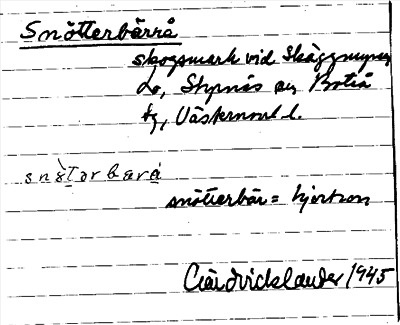 Snötterbärrå
skogsmark vid Skäggmyren
Lo, Styrnäs sn, Boteå
tg, Västernorrl l.
snötərbærå
snötterbär = hjortron
1945